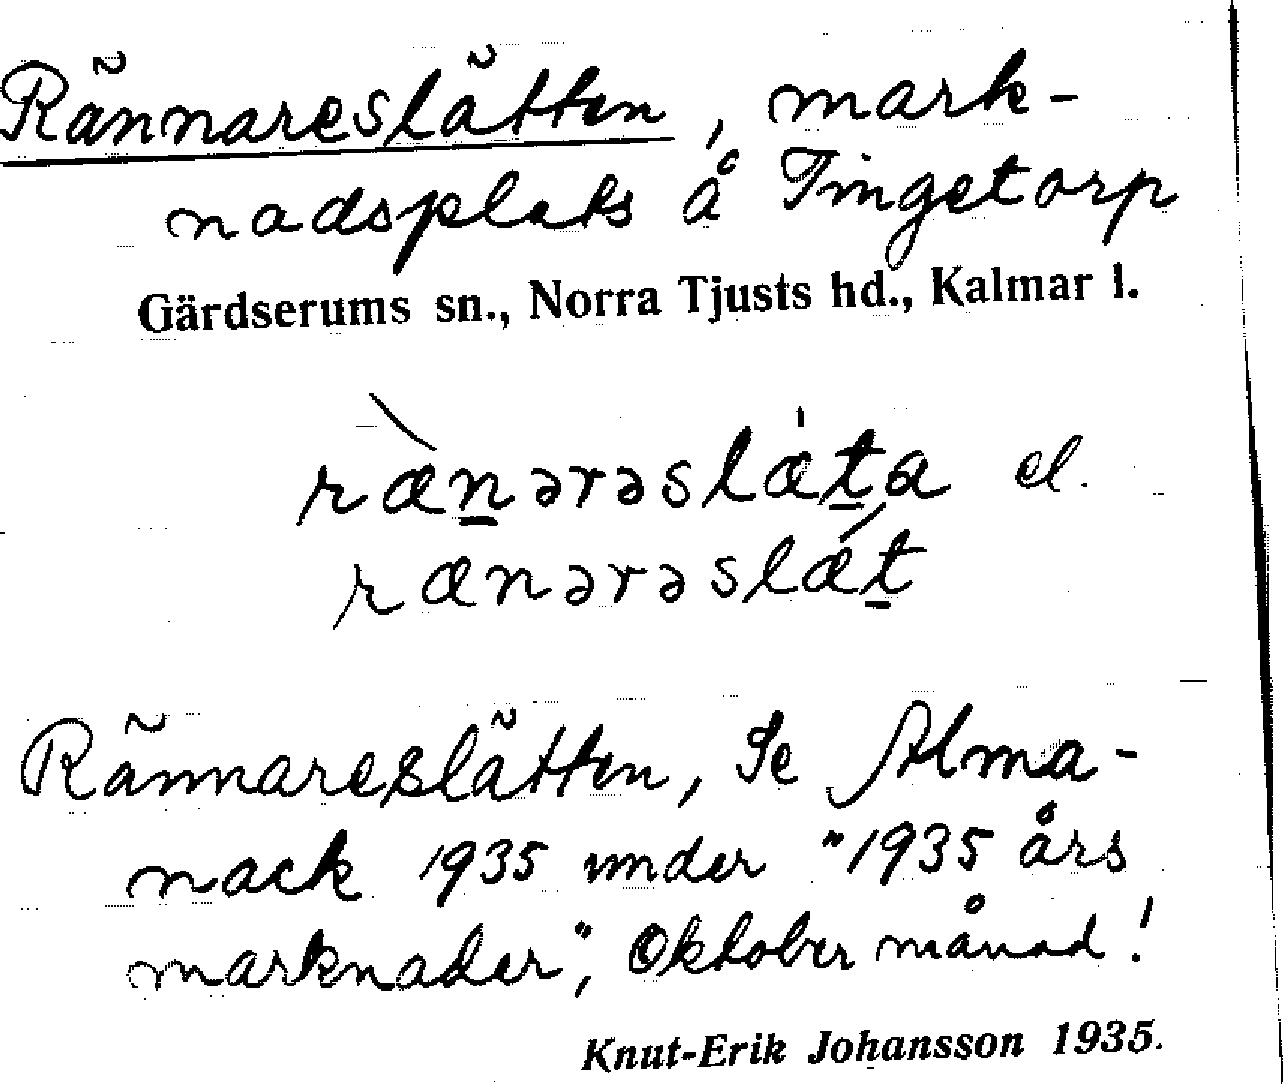 Rännareslätten, mark-
nadsplats å Tingetorp
Gärdserums sn., Norra Tjusts hd., Kalmar l.
ræ̀n̲ərəslæ̍t̲a el.
rænərəslǽt̲
Rännareslätten, Se Alma-
nack 1935 under "1935 års
marknader", Oktober månad!
Knut-Erik Johansson 1935.